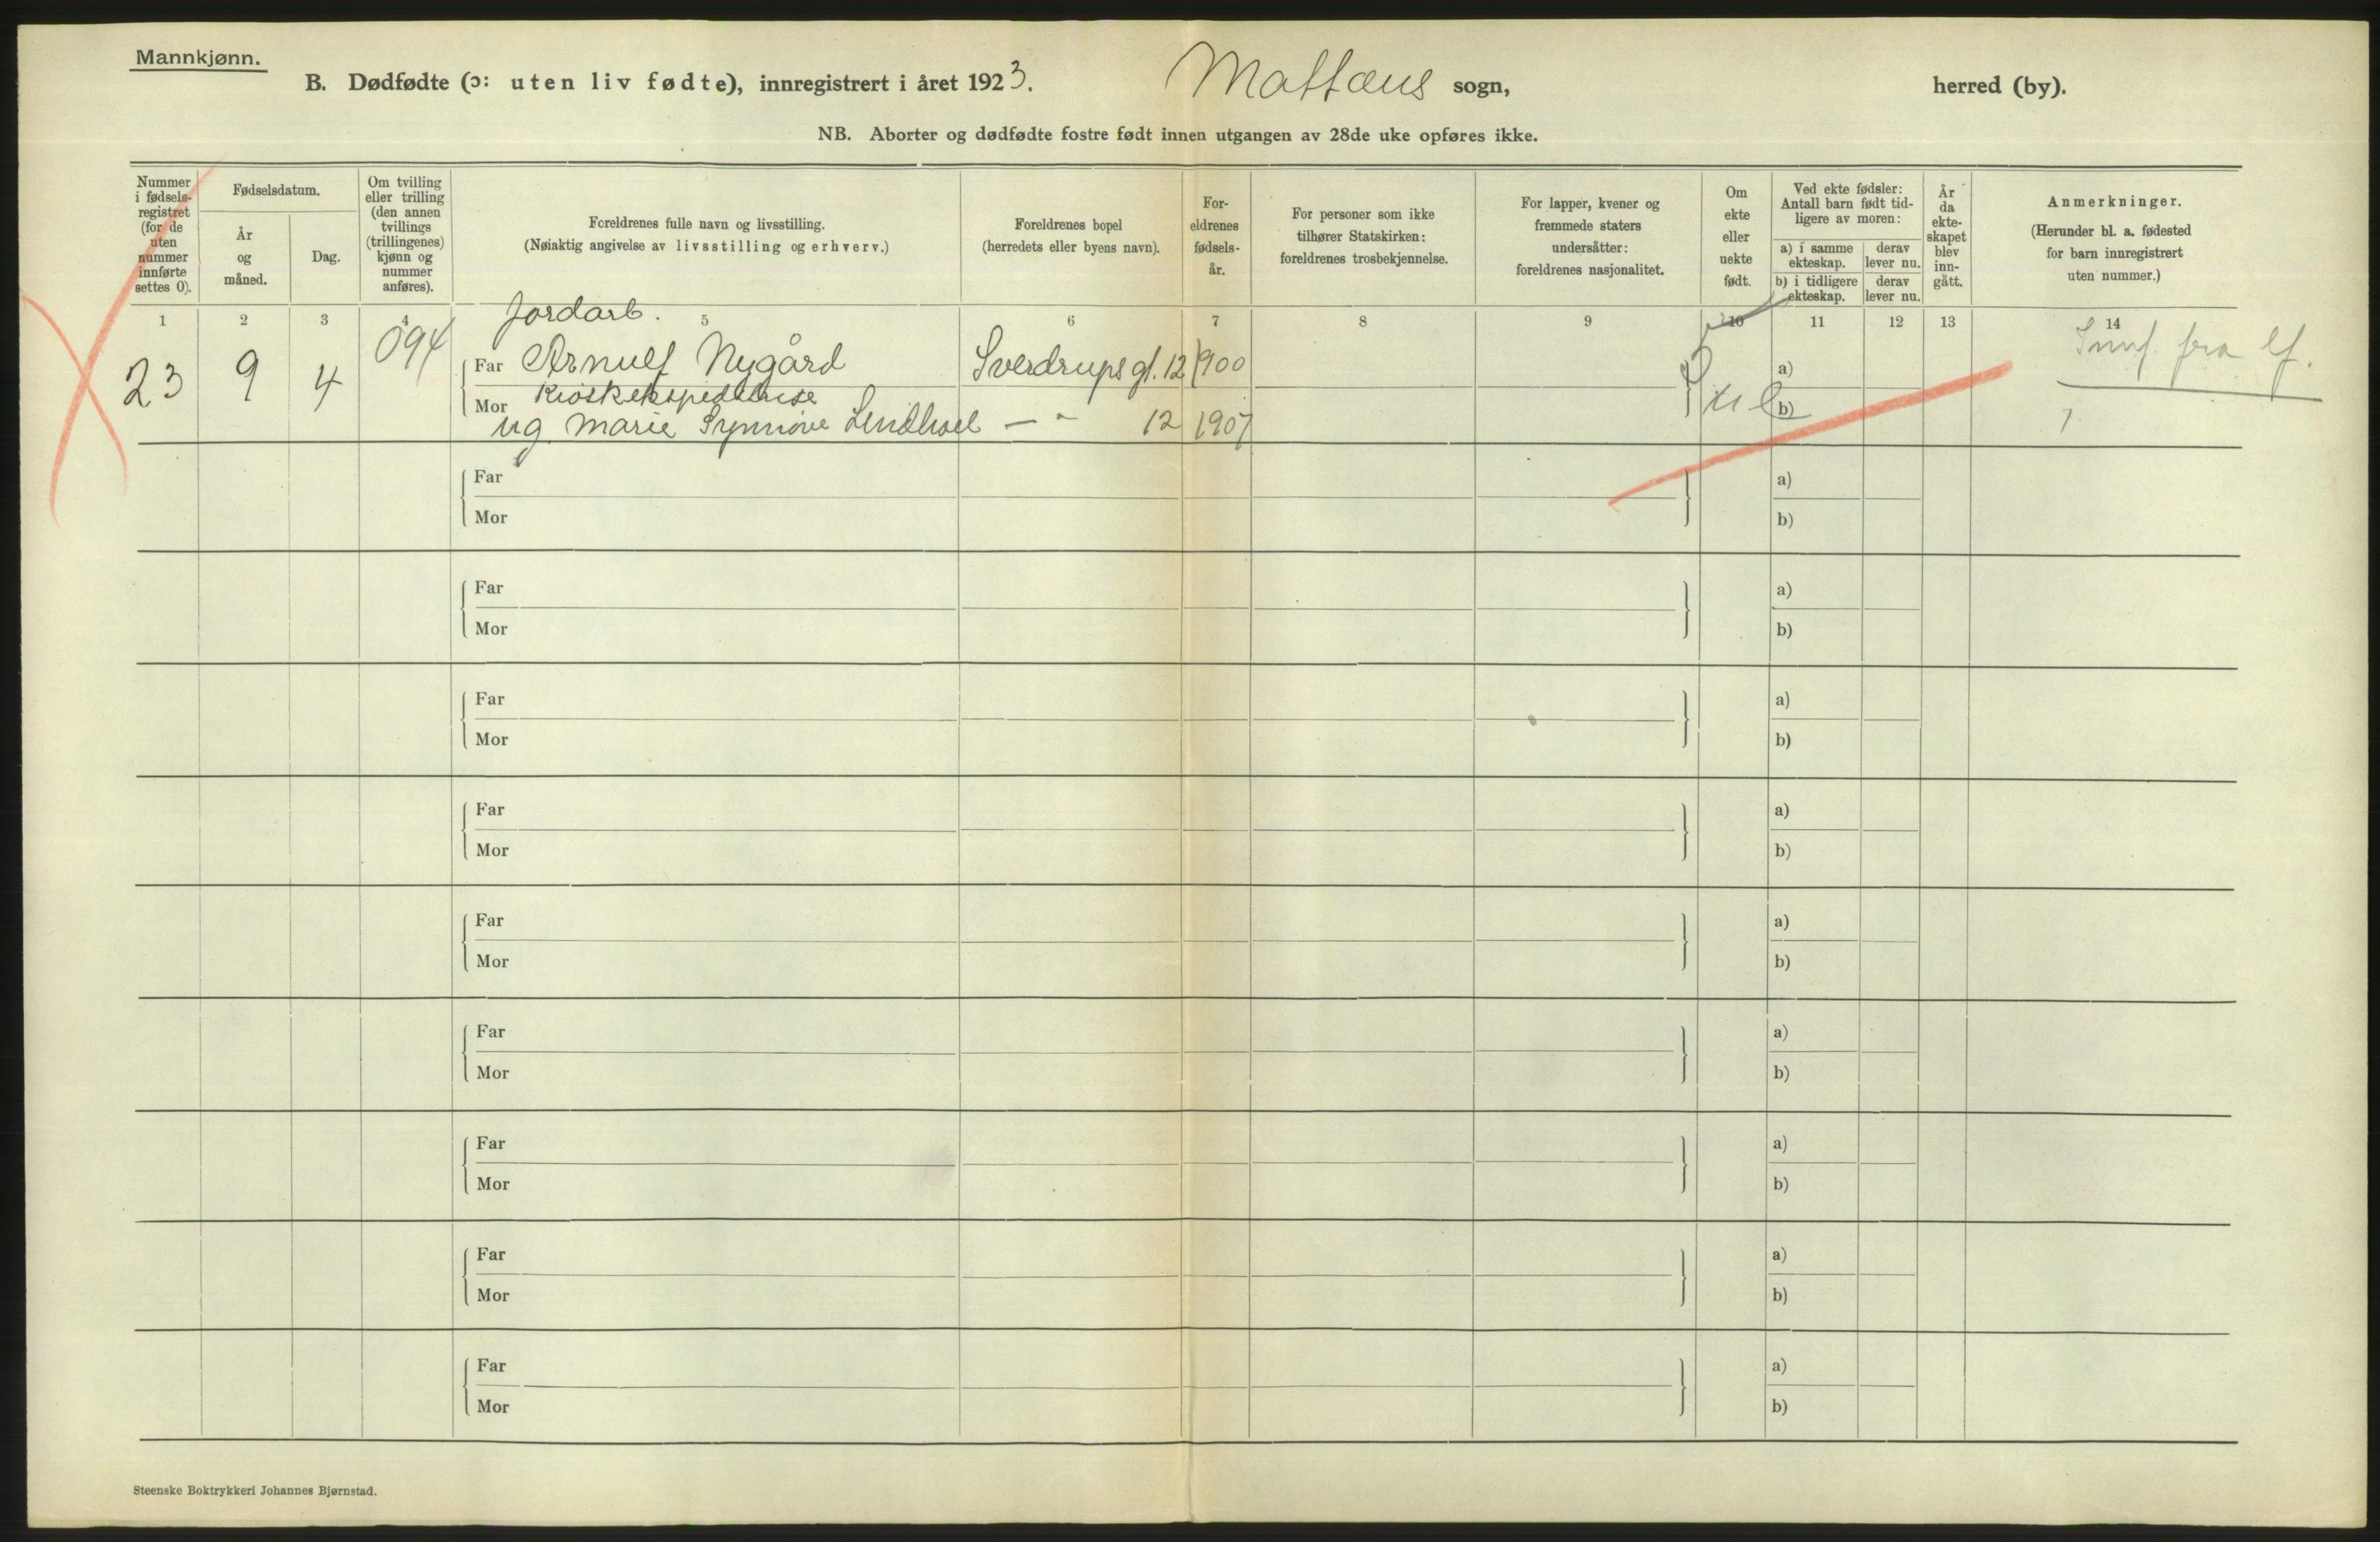 Mannkjønn.
B. Dødfødte (ɔ: uten liv fødte), innregistrert i året 1923. Mattæus sogn, herred (by).
NB. Aborter og dødfødte fostre født innen utgangen av 28de uke opføres ikke.
Nummer i fødsels-registret (for de uten nummer innførte settes 0).
Fødselsdatum.
År og måned.
Dag.
Om tvilling eller trilling (den annen tvillings (trillingenes) kjønn og nummer anføres).
Foreldrenes fulle navn og livsstilling.
(Nøiaktig angivelse av livsstilling og erhverv.)
Foreldrenes bopel
(herredets eller byens navn).
For-eldrenes fødsels-år.
For personer som ikke tilhører Statskirken: foreldrenes trosbekjennelse.
For lapper, kvener og fremmede staters undersåtter: foreldrenes nasjonalitet.
Om ekte eller uekte født.
Ved ekte fødsler: Antall barn født tid-ligere av moren:
a) i samme ekteskap.
derav lever nu.
b) i tidligere ekteskap.
derav lever nu.
År da ekte-skapet blev inn-gått.
Anmerkninger.
(Herunder bl. a. fødested for barn innregistrert uten nummer.)
1 2 3 4 5 6 7 8 9 10 11 12 13 14
Jordarb.
23 9 4 094 Far Arnulf Nygård Sverdrups gt. 12 1900 a) fra
Mor b)
ug Marie Synnøve — " 12 1907
Far a)
Mor b)
Far a)
Mor b)
Far a)
Mor b)
Far a)
Mor b)
Far a)
Mor b)
Far a)
Mor b)
Far a)
Mor b)
Far a)
Mor b)
Far a)
Mor b)
Steenske Boktrykkeri Johannes Bjørnstad.